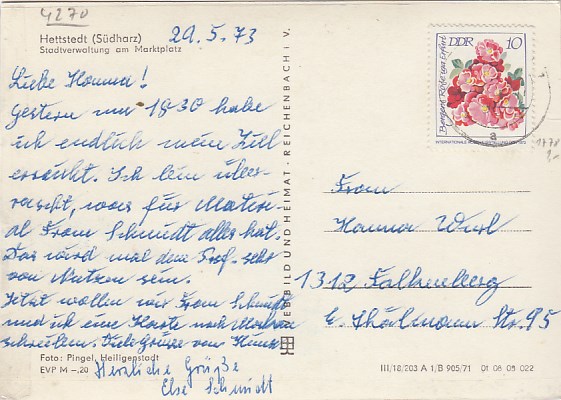 4270
Hettstedt (Südharz)
Stadtverwaltung am Marktplatz
29.5.73
Liebe Hanna!
Gestern um 18.30 habe
ich endlich mein Ziel
erreicht. Ich bin über-
rascht, was für Materi-
al Frau Schmidt alles hat.
Das wird mal dem Prof. sehr
von Nutzen sein.
Jetzt wollen wir Frau Schmidt
und ich eine Karte nach
schreiben. Viele Grüsse von
Herzliche Grüße
Else Schmidt
Foto: Pingel, Heiligenstadt
EVP M –,20
BILD UND HEIMAT · REICHENBACH i. V.
DDR 10
Bengale Rose Erfurt
Frau
Hanna Wurl
1312 Falkenberg
E. Thälmann Str. 95
III/18/203 A 1/B 905/71 01 06 09 022